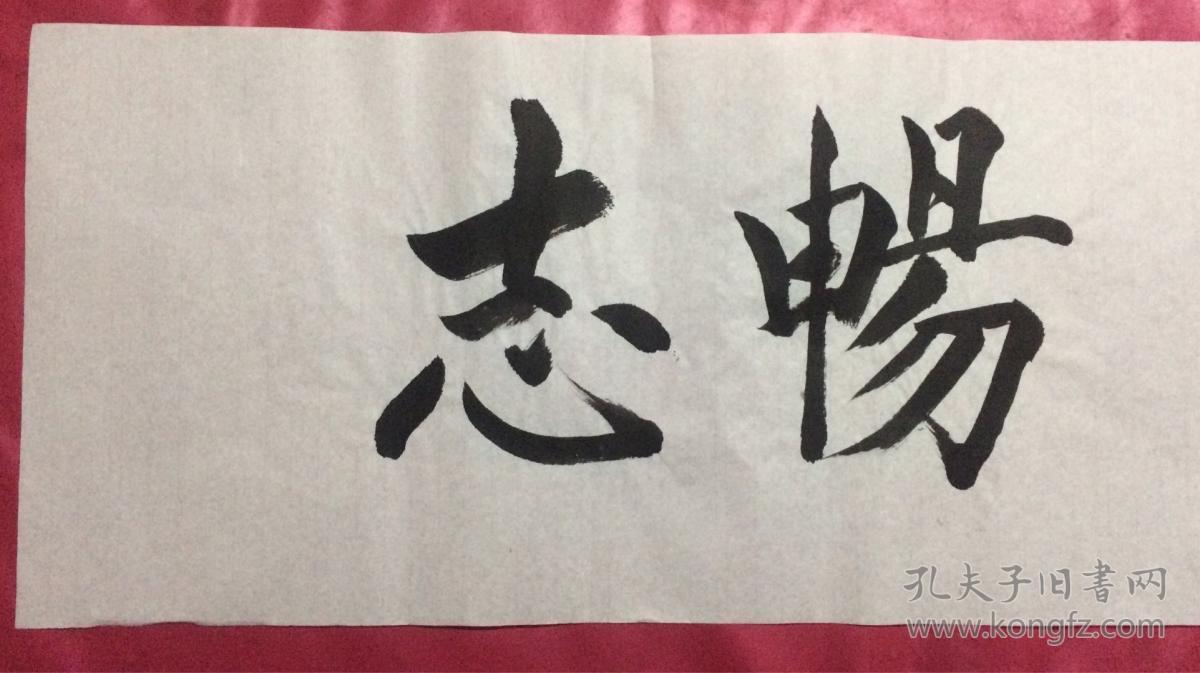 暢志
孔夫子旧書网
www.kongfz.com